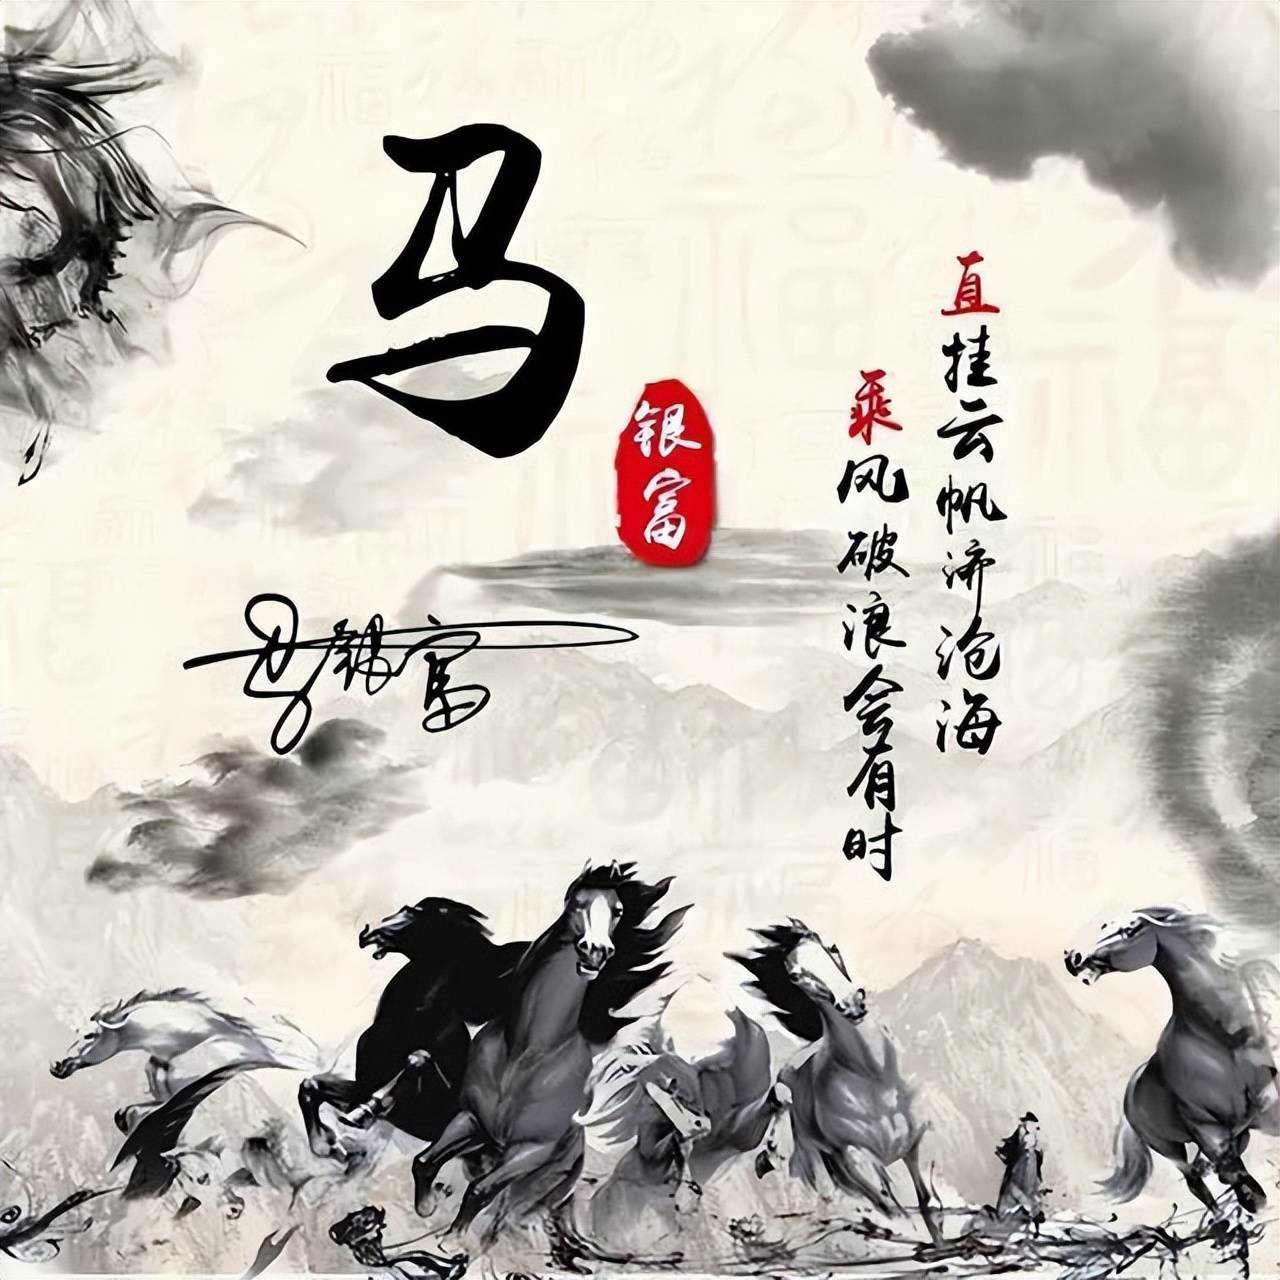 马
银富
马银富
直挂云帆济沧海
乘风破浪会有时